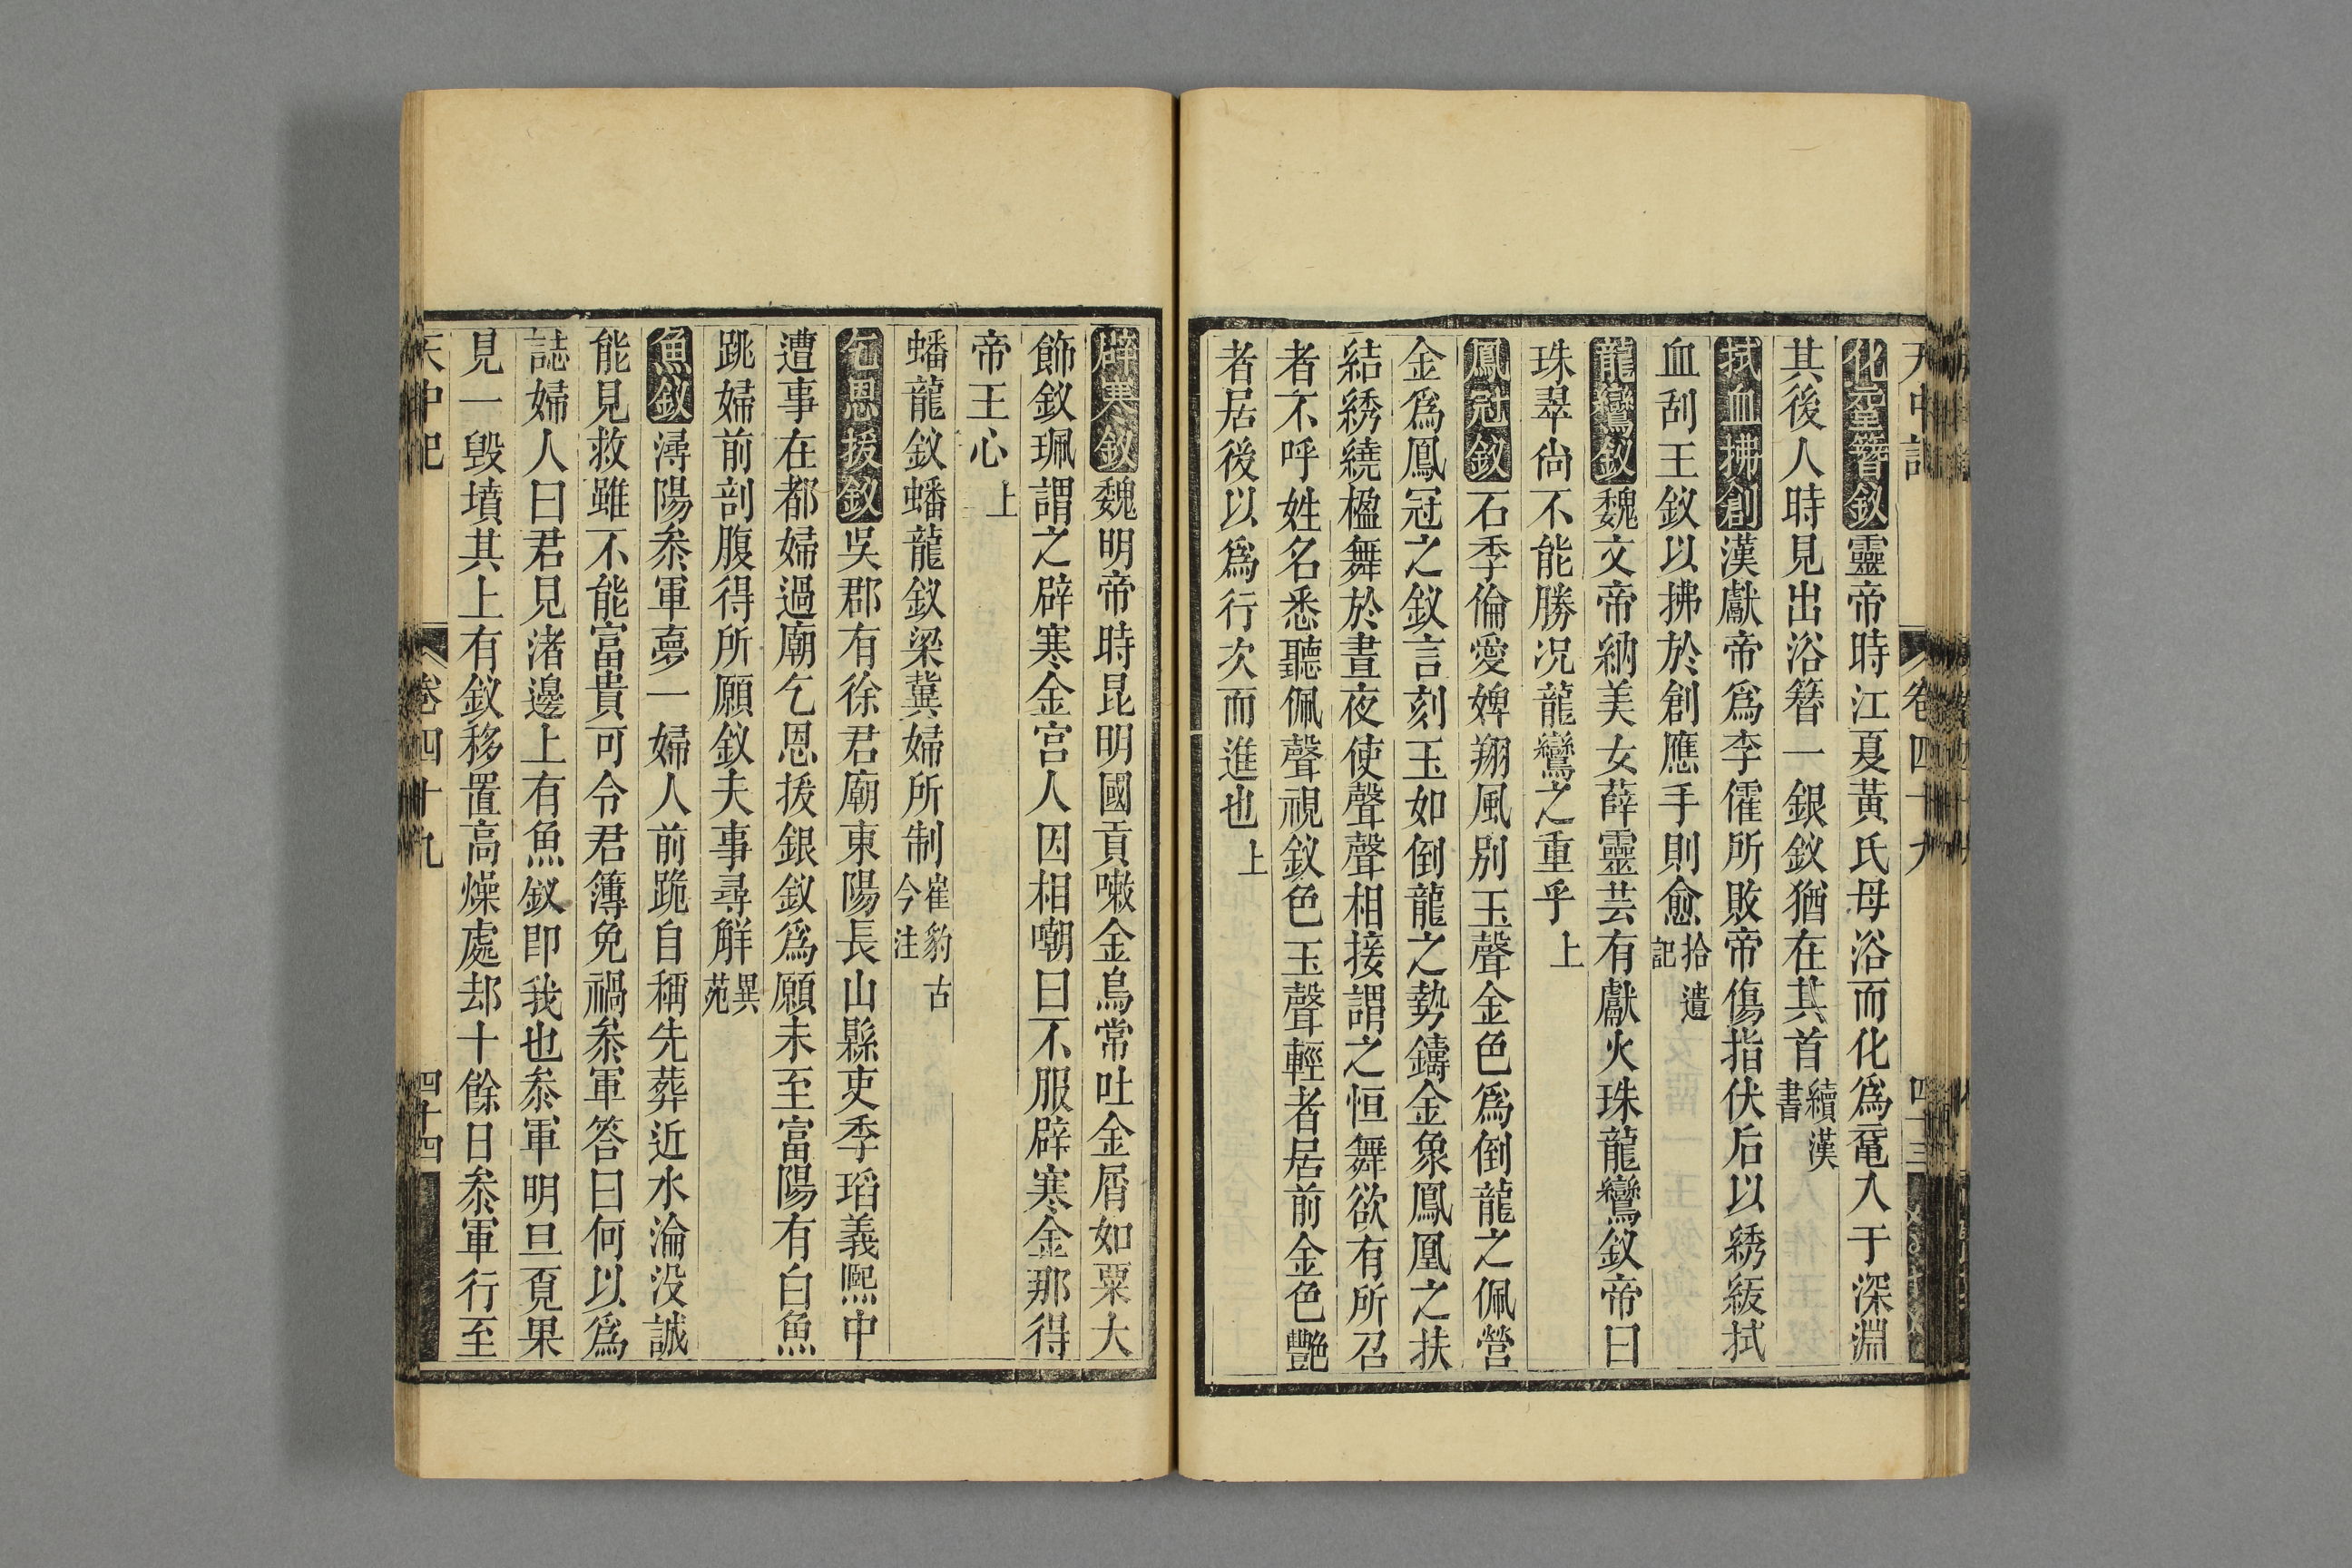 天中記 卷四十九 四十三
化黿簪釵靈帝時江夏黃氏母浴而化爲黿入于深淵
其後人時見出浴簪一銀釵猶在其首續漢書
拭血拂創漢獻帝爲李傕所敗帝傷指伏后以綉紱拭
血刮玉釵以拂於創應手則愈拾遺記
龍鸞釵魏文帝納美女薛靈芸有獻火珠龍鸞釵帝曰
珠翠尙不能勝况龍鸞之重乎上
鳳冠釵石季倫愛婢翔風别玉聲金色爲倒龍之佩營
金爲鳳冠之釵言刻玉如倒龍之勢鑄金象鳳凰之扶
結綉繞楹舞於晝夜使聲聲相接謂之恒舞欲有所召
者不呼姓名悉聽佩聲視釵色玉聲輕者居前金色艷
者居後以爲行次而進也上
辟寒釵魏明帝時昆明國貢嗽金鳥常吐金屑如粟大
飾釵珮謂之辟寒金宮人因相嘲曰不服辟寒金那得
帝王心上
蟠龍釵蟠龍釵梁冀婦所制崔豹古今注
乞恩援釵吳郡有徐君廟東陽長山縣吏季瑫義熙中
遭事在都婦過廟乞恩拔銀釵爲願未至富陽有白魚
跳婦前剖腹得所願釵夫事尋解異苑
魚釵潯陽叅軍夢一婦人前跪自稱先葬近水淪没誠
能見救雖不能富貴可令君簿免禍叅軍答曰何以爲
誌婦人曰君見渚邊上有魚釵卽我也叅軍明旦覓果
見一毀墳其上有釵移置高燥處却十餘日叅軍行至
天中記 卷四十九 四十四